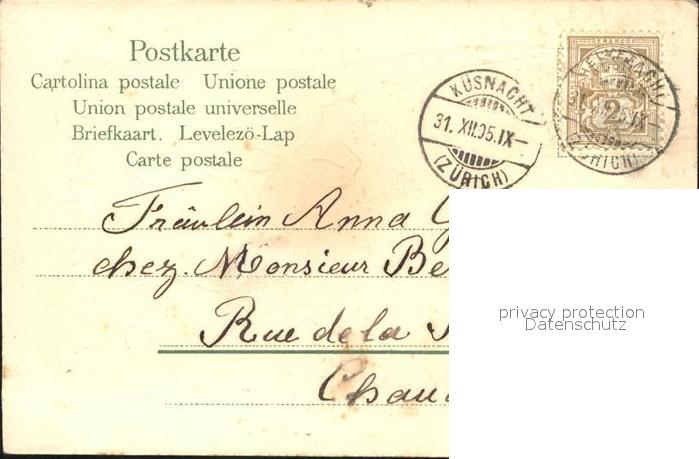 Postkarte
Cartolina postale Unione postale
Union postale universelle
Briefkaart. Levelezö-Lap
Carte postale
KÜSNACHT
31. XII.05. IX–
(ZÜRICH)
FRANCO
2
31. XII.05. IX–
(ZÜRICH)
Fräulein Anna
chez. Monsieur Be
Rue de la
Chau
privacy protection
Datenschutz